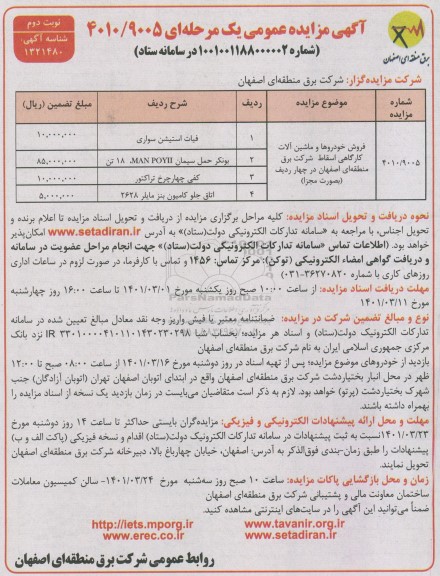 نوبت دوم
شناسه آگهی:
۱۳۲۱۴۸۰
آگهی مزایده عمومی یک مرحله‌ای ۴۰۱۰/۹۰۰۵
(شماره ۱۰۰۱۰۰۱۱۸۸۰۰۰۰۰۲ در سامانه ستاد)
برق منطقه‌ای اصفهان
شرکت مزایده‌گزار: شرکت برق منطقه‌ای اصفهان
شماره مزایده	موضوع مزایده	ردیف	شرح ردیف	مبلغ تضمین (ریال)
۴۰۱۰/۹۰۰۵	فروش خودروها و ماشین آلات کارگاهی اسقاط شرکت برق منطقه‌ای اصفهان در چهار ردیف (بصورت مجزا)
۱	فیات استیشن سواری	۱۰,۰۰۰,۰۰۰
۲	بونکر حمل سیمان MAN POYII، ۱۸ تن	۸۵,۰۰۰,۰۰۰
۳	کفی چهارچرخ تراکتور	۱۰,۰۰۰,۰۰۰
۴	اتاق جلو کامیون بنز مایلر ۲۶۲۸	۵,۰۰۰,۰۰۰
نحوه دریافت و تحویل اسناد مزایده: کلیه مراحل برگزاری مزایده از دریافت و تحویل اسناد مزایده تا اعلام برنده و
تحویل اجناس، با مراجعه به «سامانه تدارکات الکترونیکی دولت(ستاد)» به آدرس www.setadiran.ir امکان‌پذیر
خواهد بود. (اطلاعات تماس «سامانه تدارکات الکترونیکی دولت(ستاد)» جهت انجام مراحل عضویت در سامانه
و دریافت گواهی امضاء الکترونیکی (توکن): مرکز تماس: ۱۴۵۶ و تماس با کارفرما، در صورت لزوم در ساعات اداری
روزهای کاری با شماره ۳۶۲۷۰۸۲۰-۰۳۱)
مهلت دریافت اسناد مزایده: از ساعت ۱۰:۰۰ صبح روز یکشنبه مورخ ۱۴۰۱/۰۳/۰۱ تا ساعت ۱۶:۰۰ روز چهارشنبه
مورخ ۱۴۰۱/۰۳/۱۱
نوع و مبالغ تضمین شرکت در مزایده: ضمانتنامه معتبر یا فیش واریز وجه نقد معادل مبالغ تعیین شده در سامانه
تدارکات الکترونیک دولت(ستاد) و اسناد هر مزایده؛ بحساب شبا IR ۳۳۰۱۰۰۰۰۴۱۰۱۱۰۱۴۳۰۲۳۰۲۹۸ نزد بانک
مرکزی جمهوری اسلامی ایران به نام شرکت برق منطقه‌ای اصفهان
بازدید از خودروهای موضوع مزایده؛ پس از تهیه اسناد در روز دوشنبه مورخ ۱۴۰۱/۰۳/۱۶ از ساعت ۰۸:۰۰ صبح تا ۱۲:۰۰
ظهر در محل انبار بختیاردشت شرکت برق منطقه‌ای اصفهان واقع در ابتدای اتوبان اصفهان تهران (اتوبان آزادگان) جنب
شهرک بختیاردشت (پرتو) خواهد بود. لازم به ذکر است متقاضیان می‌بایست در زمان بازدید یک نسخه از اسناد مزایده را
بهمراه داشته باشند.
مهلت و محل ارائه پیشنهادات الکترونیکی و فیزیکی: مزایده‌گران بایستی حداکثر تا ساعت ۱۴ روز دوشنبه مورخ
۱۴۰۱/۰۳/۲۳ نسبت به ثبت پیشنهادات در سامانه تدارکات الکترونیک دولت(ستاد) اقدام و نسخه فیزیکی (پاکت الف و ب)
پیشنهادات را طبق زمان-بندی فوق‌الذکر به آدرس: اصفهان، خیابان چهارباغ بالا، دبیرخانه شرکت برق منطقه‌ای اصفهان
تحویل نمایند.
زمان و محل بازگشایی پاکات مزایده: ساعت ۱۰ صبح روز سه شنبه مورخ ۱۴۰۱/۰۳/۲۴- سالن کمیسیون معاملات
ساختمان معاونت مالی و پشتیبانی شرکت برق منطقه‌ای اصفهان
ضمناً می‌توانید این آگهی را در سایت‌های اینترنتی مشاهده کنید.
http://iets.mporg.ir	www.tavanir.org.ir
www.erec.co.ir	www.setadiran.ir
روابط عمومی شرکت برق منطقه‌ای اصفهان